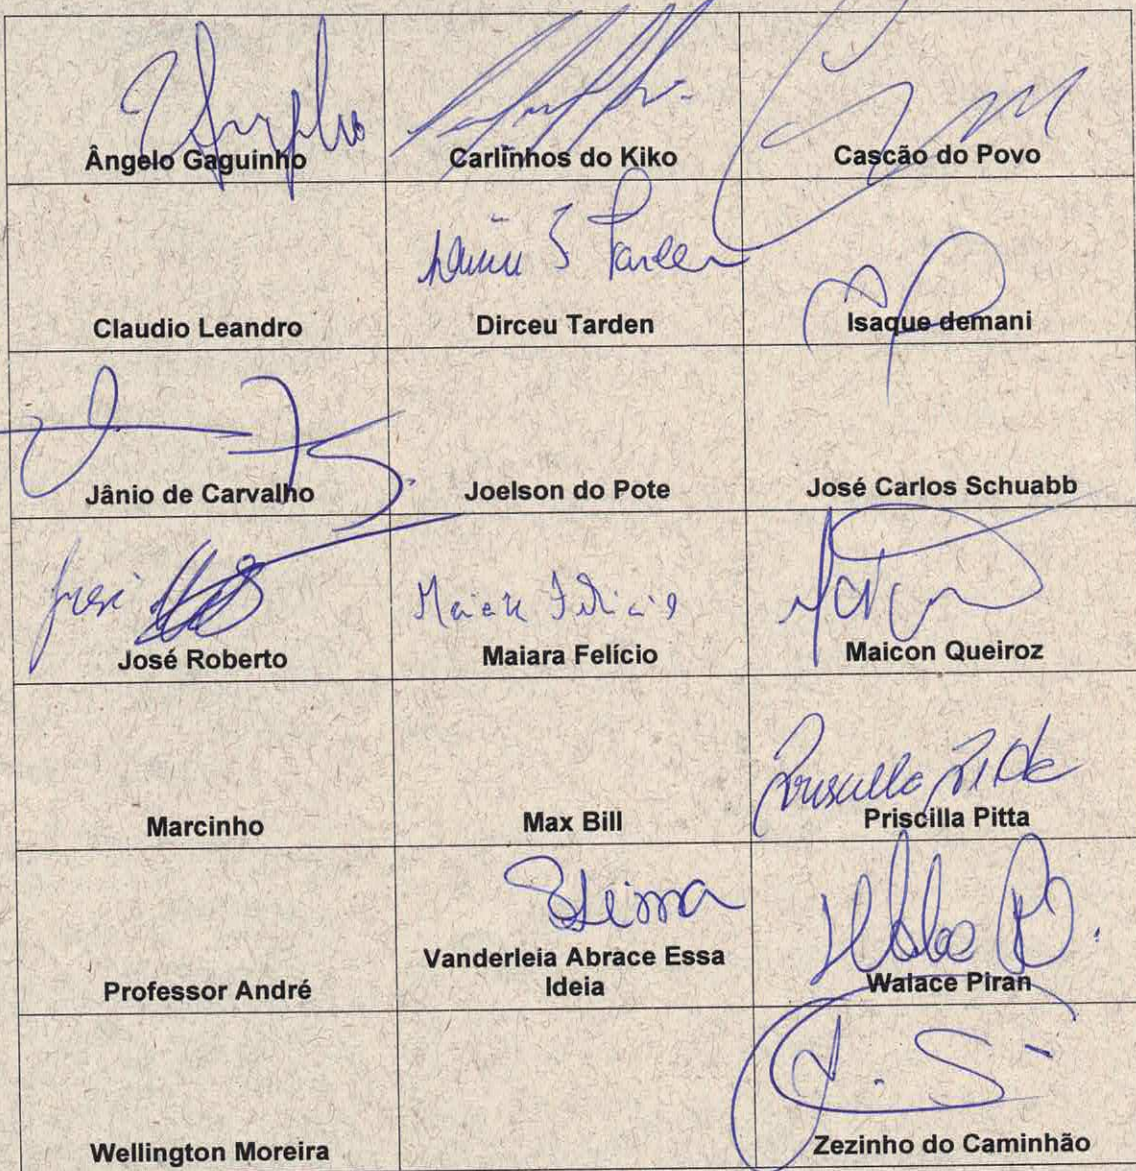 Ângelo Gaguinho
Carlinhos do Kiko
Cascão do Povo
Claudio Leandro
Dirceu Tarden
Isaque demani
Jânio de Carvalho
Joelson do Pote
José Carlos Schuabb
José
José Roberto
Maiara Felício
Maiara Felício
Maicon Queiroz
Marcinho
Max Bill
Priscilla Pitta
Priscilla Pitta
Professor André
Vanderleia Abrace Essa
Ideia
Walace Piran
Wellington Moreira
Zezinho do Caminhão